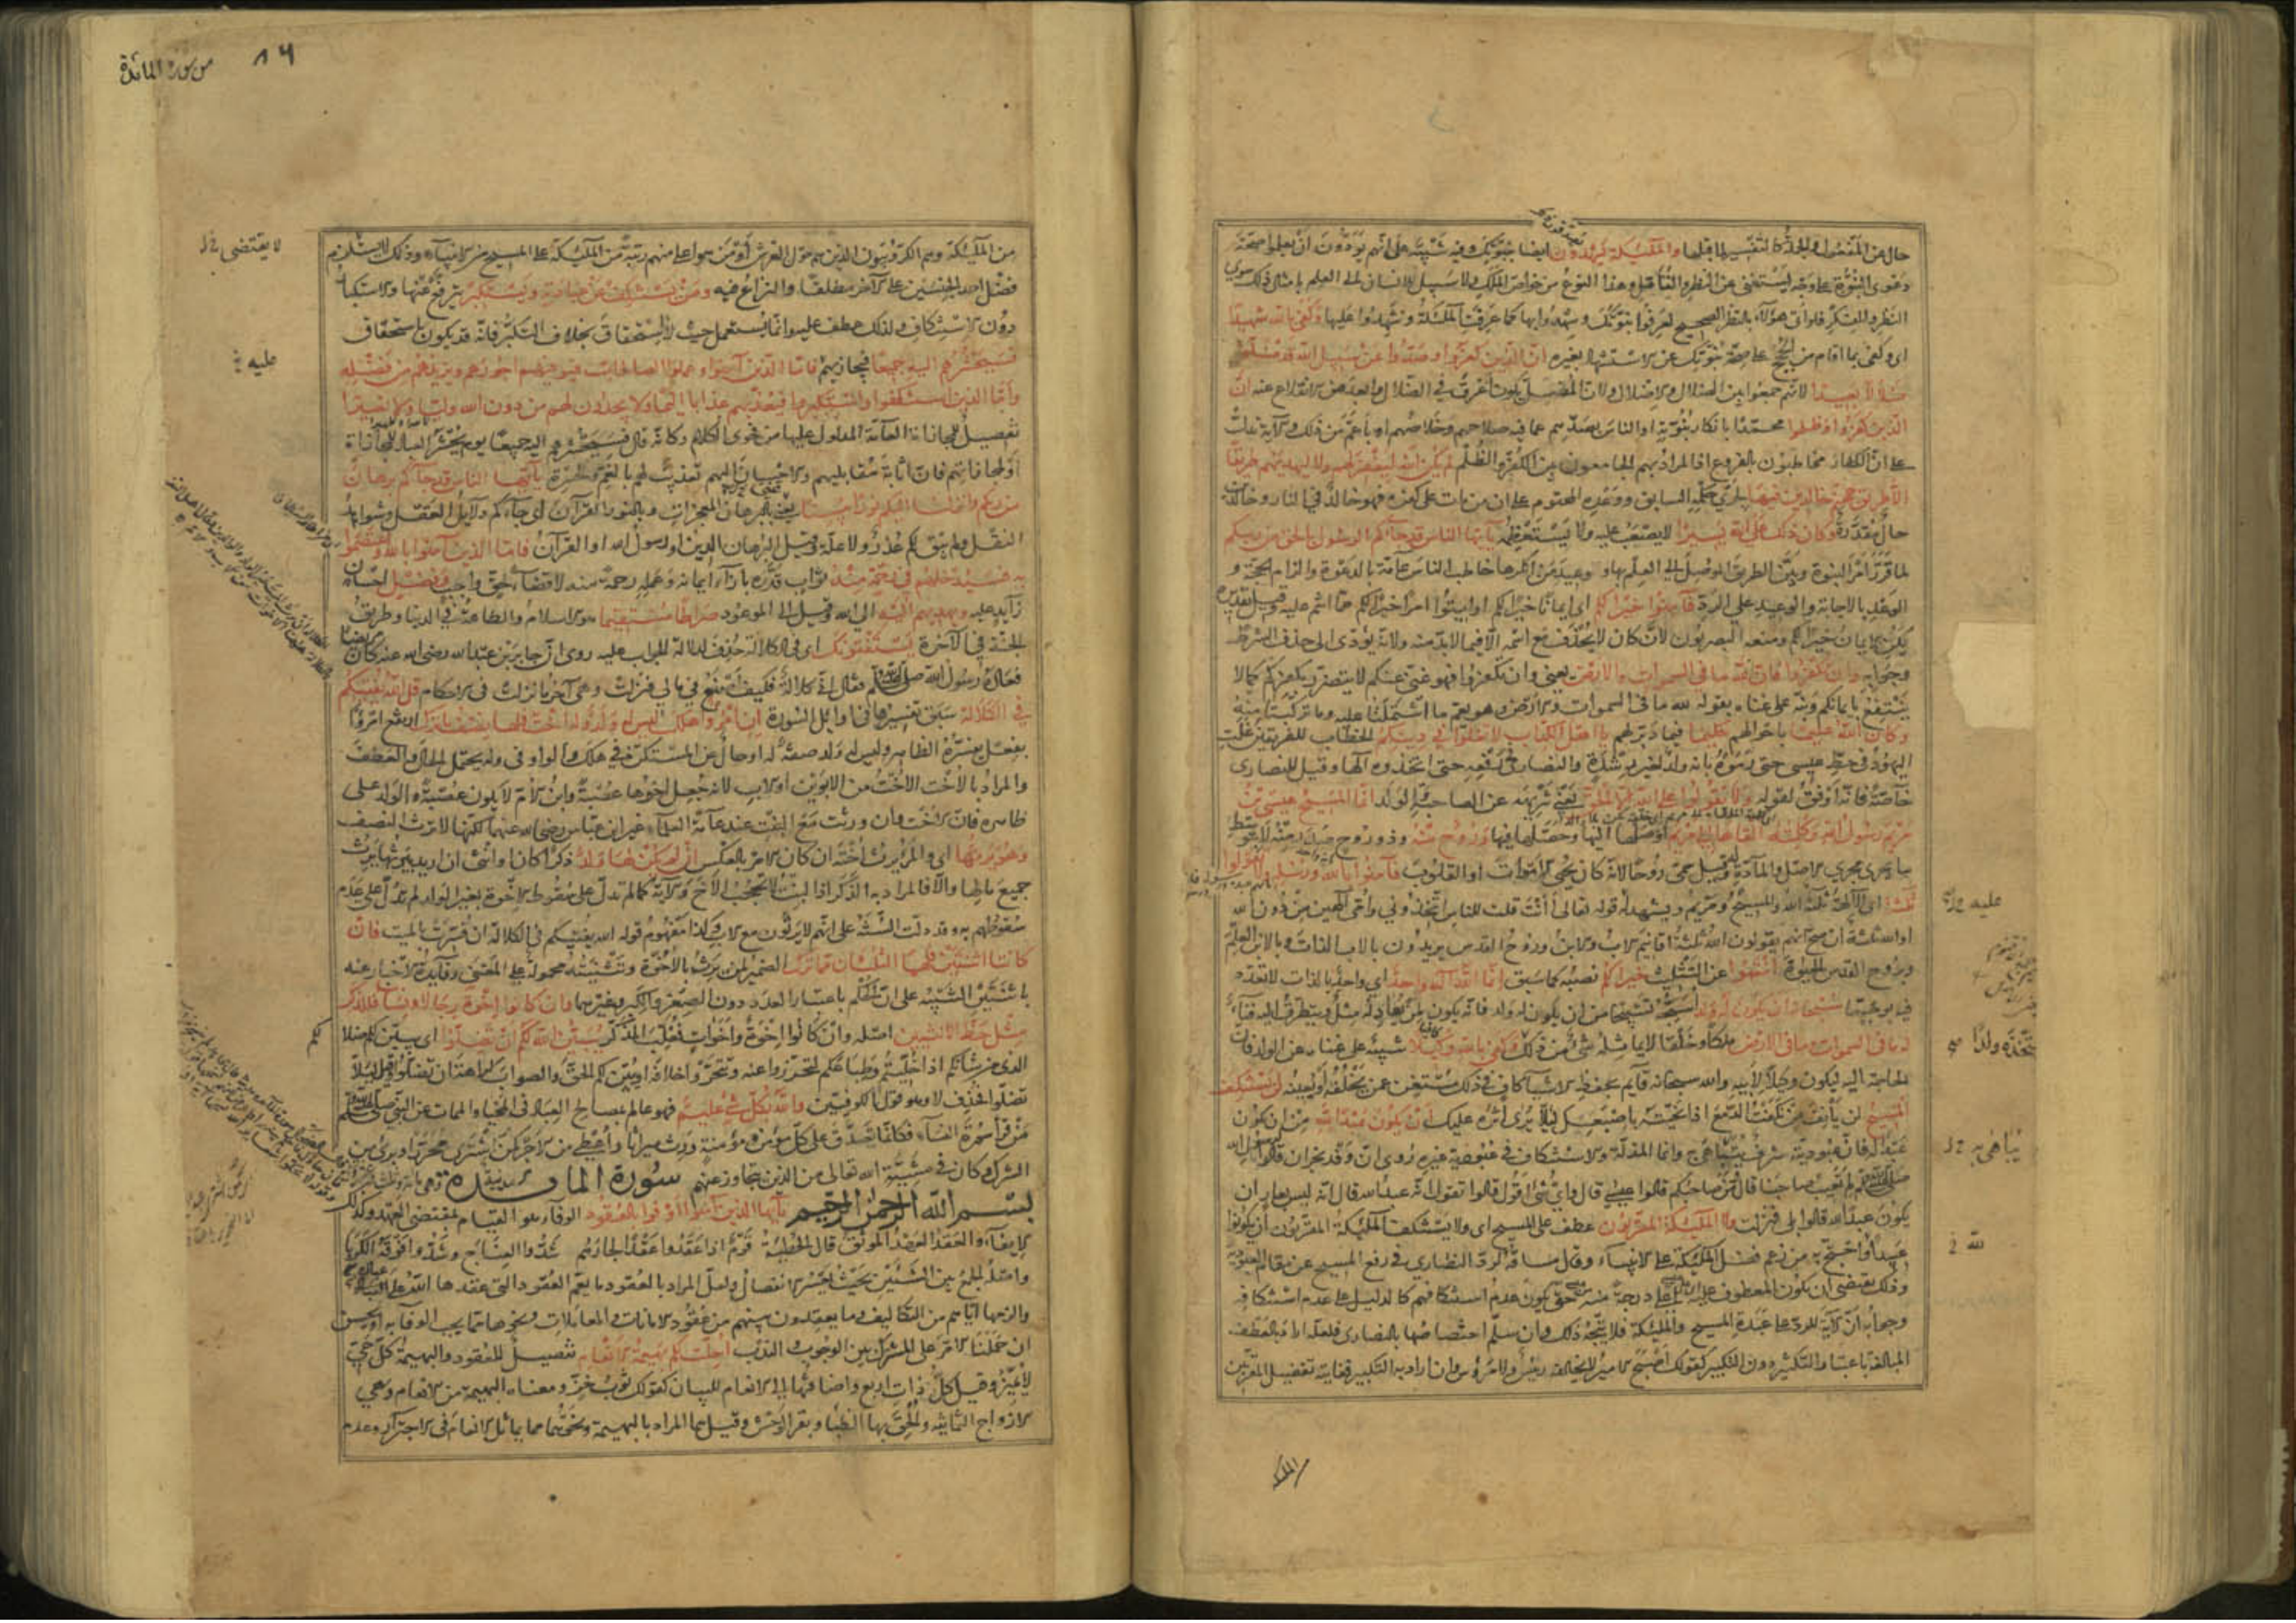 حال عن المفعول والجملة كالتفسير لما قبلها والملئكة يشهدون ايضا بنبوتك وفيه تنبيه على انهم يودون ان يعلموا صحة
دعوى النبوة على وجه يستغنى عن النظر والتأمل وهذا النوع من خواص الملك ولا سبيل للانسان الى العلم بامثال ذلك سوى
النظر والفكر فلو اتى هؤلاء بالنظر الصحيح لعرفوا نبوتك وشهدوا بها كما عرفت الملئكة وشهدوا عليها وكفى بالله شهيدا
اى وكفى بما اقام من الحجج على صحة نبوتك عن الاستشهاد بغيره ان الذين كفروا وصدوا عن سبيل الله قد ضلوا
ضلالا بعيدا لانهم جمعوا بين الضلال والاضلال ولان المضل يكون اغرق في الضلال وابعد من الانقلاع عنه ان
الذين كفروا وظلموا محمدا بانكار نبوته او الناس بصدهم عما فيه صلاحهم وخلاصهم او باعم من ذلك والآية تدل
على ان الكفار مخاطبون بالفروع اذ المراد بهم الجامعون بين الكفر والظلم لم يكن الله ليغفر لهم ولا ليهديهم طريقا
الا طريق جهنم خالدين فيها لجرى حكمه السابق ووعده المحتوم على ان من مات على كفره فهو خالد في النار وخالدين
حال مقدرة وكان ذلك على الله يسيرا لا يصعب عليه ولا يستعظمه يا ايها الناس قد جاءكم الرسول بالحق من ربكم
لما قرر امر النبوة وبين الطريق الموصل الى العلم بها ووعيد من انكرها خاطب الناس عامة بالدعوة والزام الحجة و
الوعد بالاجابة والوعيد على الرد فآمنوا خيرا لكم اى ايمانا خيرا لكم او ايتوا امرا خيرا لكم مما انتم عليه وقيل تقديره
يكن الايمان خيرا لكم ومنعه البصريون لان كان لا يحذف مع اسمه الا فيما لا بد منه ولانه يؤدى الى حذف الشرط
وجوابه وان تكفروا فان لله ما في السموات والارض يعنى وان تكفروا فهو غنى عنكم لا يتضرر بكفركم كما لا
ينتفع بايمانكم ونبه على غناه بقوله لله ما في السموات والارض وهو يعم ما اشتملتا عليه وما تركبتا منه
وكان الله عليما باحوالهم حكيما فيما دبر لهم يا اهل الكتاب لا تغلوا في دينكم الخطاب للفريقين غلت
اليهود في حط عيسى حتى رموه بانه ولد لغير رشدة والنصارى في رفعه حتى اتخذوه الها وقيل للنصارى
خاصة فانه اوفق لقوله ولا تقولوا على الله الا الحق يعنى تنزيهه عن الصاحبة والولد انما المسيح عيسى بن
مريم رسول الله وكلمته القاها الى مريم اوصلها اليها وحصلها فيها وروح منه وذو روح صدر منه لا بتوسط
ما يجرى مجرى الاصل والمادة له وقيل سمى روحا لانه كان يحيى الاموات او القلوب فآمنوا بالله ورسله ولا تقولوا
ثلثة اى الآلهة ثلثة الله والمسيح ومريم ويشهد له قوله تعالى أأنت قلت للناس اتخذوني وامى الهين من دون الله
او الله ثلثة ان صح انهم يقولون الله ثلثة اقانيم الاب والابن وروح القدس يريدون بالاب الذات وبالابن العلم
وبروح القدس الحيوة انتهوا عن التثليث خيرا لكم نصبه كما سبق انما الله اله واحد اى واحد بالذات لا تعدد
فيه بوجه ما سبحانه ان يكون له ولد اسبحه تسبيحا من ان يكون له ولد فانه يكون لمن يعادله مثل ويتطرق اليه فناء
له ما في السموات وما في الارض ملكا وخلقا لا يماثله شىء من ذلك وكفى بالله وكيلا تنبيه على غناه عن الولد فان
الحاجة اليه ليكون وكيلا لابيه والله سبحانه قايم بحفظ الاشياء كاف في ذلك مستغن عمن يخلفه او يعينه لن يستنكف
المسيح لن يأنف من نكفت الدمع اذا نحيته باصبعك ليلا يرى اثره عليك ان يكون عبدا لله من ان يكون
عبدا له فان عبوديته شرف يتباهى به وانما المذلة والاستنكاف في عبودية غيره روى ان وفد نجران قالوا لرسول الله
صلى الله عليه وسلم لم تعيب صاحبنا قال ومن صاحبكم قالوا عيسى قال واى شىء اقول قالوا تقول انه عبد الله قال انه ليس بعار ان
يكون عبدا لله قالوا بلى فنزلت ولا الملئكة المقربون عطف على المسيح اى ولا يستنكف الملئكة المقربون ان يكونوا
عبيدا واحتج به من زعم فضل الملئكة على الانبياء وقال مساقه لرد النصارى في رفع المسيح عن مقام العبودية
وذلك يقتضى ان يكون المعطوف عليه اعلى درجة منه حتى يكون عدم استنكافهم كالدليل على عدم استنكافه
وجوابه ان الآية للرد على عبدة المسيح والملئكة فلا يتجه ذلك وان سلم اختصاصها بالنصارى فلعله اراد بالعطف
المبالغة باعتبار التكثير دون التكبير كقولك اصبح الامير لا يخالفه رئيس ولا مرؤس وان اراد به التكبير فغايته تفضيل المقربين
عليه
يتخذه ولدا
يتباهى به
لله
الملئكة
من سورة المائدة
٨٦
من الملئكة وهم الكروبيون الذين هم حول العرش او من هو اعلى منهم رتبة من الملئكة على المسيح من الانبياء وذلك لا يستلزم
فضل احد الجنسين على الآخر مطلقا والنزاع فيه ومن يستنكف عن عبادته ويستكبر يترفع عنها والاستكبار
دون الاستنكاف ولذلك عطف عليه وانما يستعمل حيث لا استحقاق بخلاف التكبر فانه قد يكون باستحقاق
فسيحشرهم اليه جميعا فيجازيهم فاما الذين آمنوا وعملوا الصالحات فيوفيهم اجورهم ويزيدهم من فضله
واما الذين استنكفوا واستكبروا فيعذبهم عذابا اليما ولا يجدون لهم من دون الله وليا ولا نصيرا
تفصيل للمجازاة العامة المدلول عليها من فحوى الكلام وكانه قال فسيحشرهم اليه جميعا يوم يحشر العباد للمجازاة
او لمجازاتهم فان اثابة مقابليهم والاحسان اليهم تعذيب لهم بالغم والحسرة يا ايها الناس قد جاءكم برهان
من ربكم وانزلنا اليكم نورا مبينا يعنى بالبرهان المعجزات وبالنور القرآن اى جاءكم دلايل العقل وشواهد
النقل ولم يبق لكم عذر ولا علة وقيل البرهان الدين او رسول الله او القرآن فاما الذين آمنوا بالله واعتصموا
به فسيدخلهم في رحمة منه ثواب قدره بازاء ايمانه وعمله رحمة منه لا قضاء لحق واجب وفضل احسان
زايد عليه ويهديهم اليه الى الله وقيل الى الموعود صراطا مستقيما هو الاسلام والطاعة في الدنيا وطريق
الجنة في الآخرة يستفتونك اى في الكلالة حذف لدلالة الجواب عليه روى ان جابر بن عبد الله رضى الله عنه كان مريضا
فعاده رسول الله صلى الله عليه وسلم فقال انى كلالة فكيف اصنع في مالى فنزلت وهى آخر ما نزلت في الاحكام قل الله يفتيكم
في الكلالة سبق تفسيرها في اوايل السورة ان امرؤ هلك ليس له ولد وله اخت فلها نصف ما ترك ارتفع امرؤ
بفعل يفسره الظاهر وليس له ولد صفة له او حال عن المستكن في هلك والواو في وله يحتمل الحال والعطف
والمراد بالاخت الاخت من الابوين او الاب لانه جعل اخوها عصبة وابن الام لا يكون عصبة والولد على
ظاهره فان الاخت وان ورثت مع البنت عند عامة العلماء غير ابن عباس رضى الله عنهما لكنها لا ترث النصف
وهو يرثها اى والمرء يرث اخته ان كان الامر بالعكس ان لم يكن لها ولد ذكرا كان او انثى ان اريد بيرثها يرث
جميع مالها والا فالمراد به الذكر اذ البنت لا تحجب الاخ والآية كما لم تدل على سقوط الاخوة بغير الولد لم تدل على عدم
سقوطهم به وقد دلت السنة على انهم لا يرثون مع الاب وكذا مفهوم قوله الله يفتيكم في الكلالة ان فسرت بالميت فان
كانتا اثنتين فلهما الثلثان مما ترك الضمير لمن يرث بالاخوة وتثنيته محمولة على المعنى وفايدة الاخبار عنه
باثنتين التنبيه على ان الحكم باعتبار العدد دون الصغر والكبر وغيرهما وان كانوا اخوة رجالا ونساء فللذكر
مثل حظ الانثيين اصله وان كانوا اخوة واخوات فغلب المذكر يبين الله لكم ان تضلوا اى يبين لكم ضلالكم
الذى من شانكم اذا خليتم وطباعكم لتحترزوا عنه وتتحروا خلافه او يبين لكم الحق والصواب كراهة ان تضلوا وقيل ليلا
تضلوا فحذف لا وهو قول الكوفيين والله بكل شىء عليم فهو عالم بمصالح العباد في المحيا والممات عن النبى صلى الله عليه وسلم
من قرأ سورة النساء فكانما تصدق على كل مؤمن ومؤمنة ورث ميراثا واعطى من الاجر كمن اشترى محررا وبرئ من
الشرك وكان في مشيئة الله تعالى من الذين يتجاوز عنهم سورة المائدة مدنية وهى مائة
بسم الله الرحمن الرحيم يا ايها الذين آمنوا اوفوا بالعقود الوفاء هو القيام بمقتضى العهد وكذلك
الايفاء والعقد العهد الموثق قال الحطيئة قوم اذا عقدوا عقدا لجارهم شدوا العناج وشدوا فوقه الكربا
واصله الجمع بين الشيئين بحيث يعسر الانفصال ولعل المراد بالعقود ما يعم العقود التى عقدها الله على عباده
والزمها اياهم من التكاليف وما يعقدون بينهم من عقود الامانات والمعاملات ونحوها مما يجب الوفاء به او يحسن
ان حملنا الامر على المشترك بين الوجوب والندب احلت لكم بهيمة الانعام تفصيل للعقود والبهيمة كل حى
لا يميز وقيل كل ذات اربع واضافتها الى الانعام للبيان كقولك ثوب خز ومعناه البهيمة من الانعام وهى
الازواج الثمانية والحق بها الظباء وبقر الوحش وقيل هما المراد بالبهيمة ونحوهما مما يماثل الانعام في الاجترار وعدم
لا يقتضى
عليه